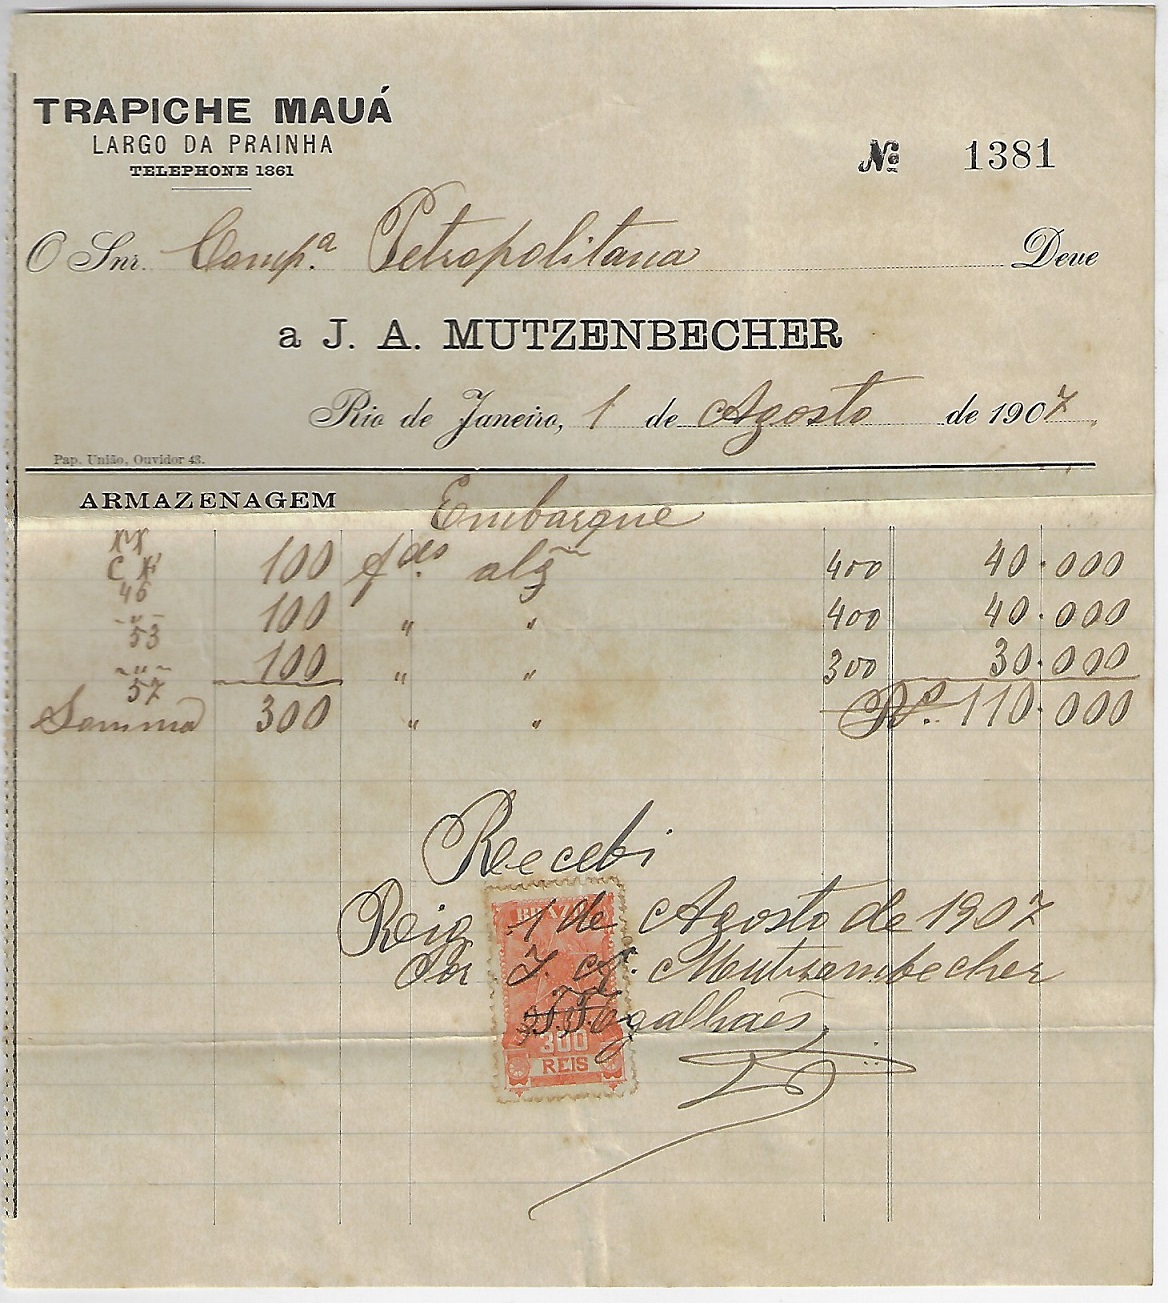 TRAPICHE MAUÁ
LARGO DA PRAINHA
TELEPHONE 1861
Nº 1381
O Snr. Comp.ª Petropolitana Deve
a J. A. MUTZENBECHER
Rio de Janeiro, 1 de Agosto de 1907
Pap. União, Ouvidor 43.
ARMAZENAGEM Embarque
C 100 fdos alg 400 40.000
46
-"- 100 " " 400 40.000
53
-"- 100 " " 300 30.000
57
Somma 300 " " Rs. 110.000
Recebi
Rio 1 de Agosto de 1907
Por J. A. Mutzembecher
Magalhaes
BRAZIL
300
REIS